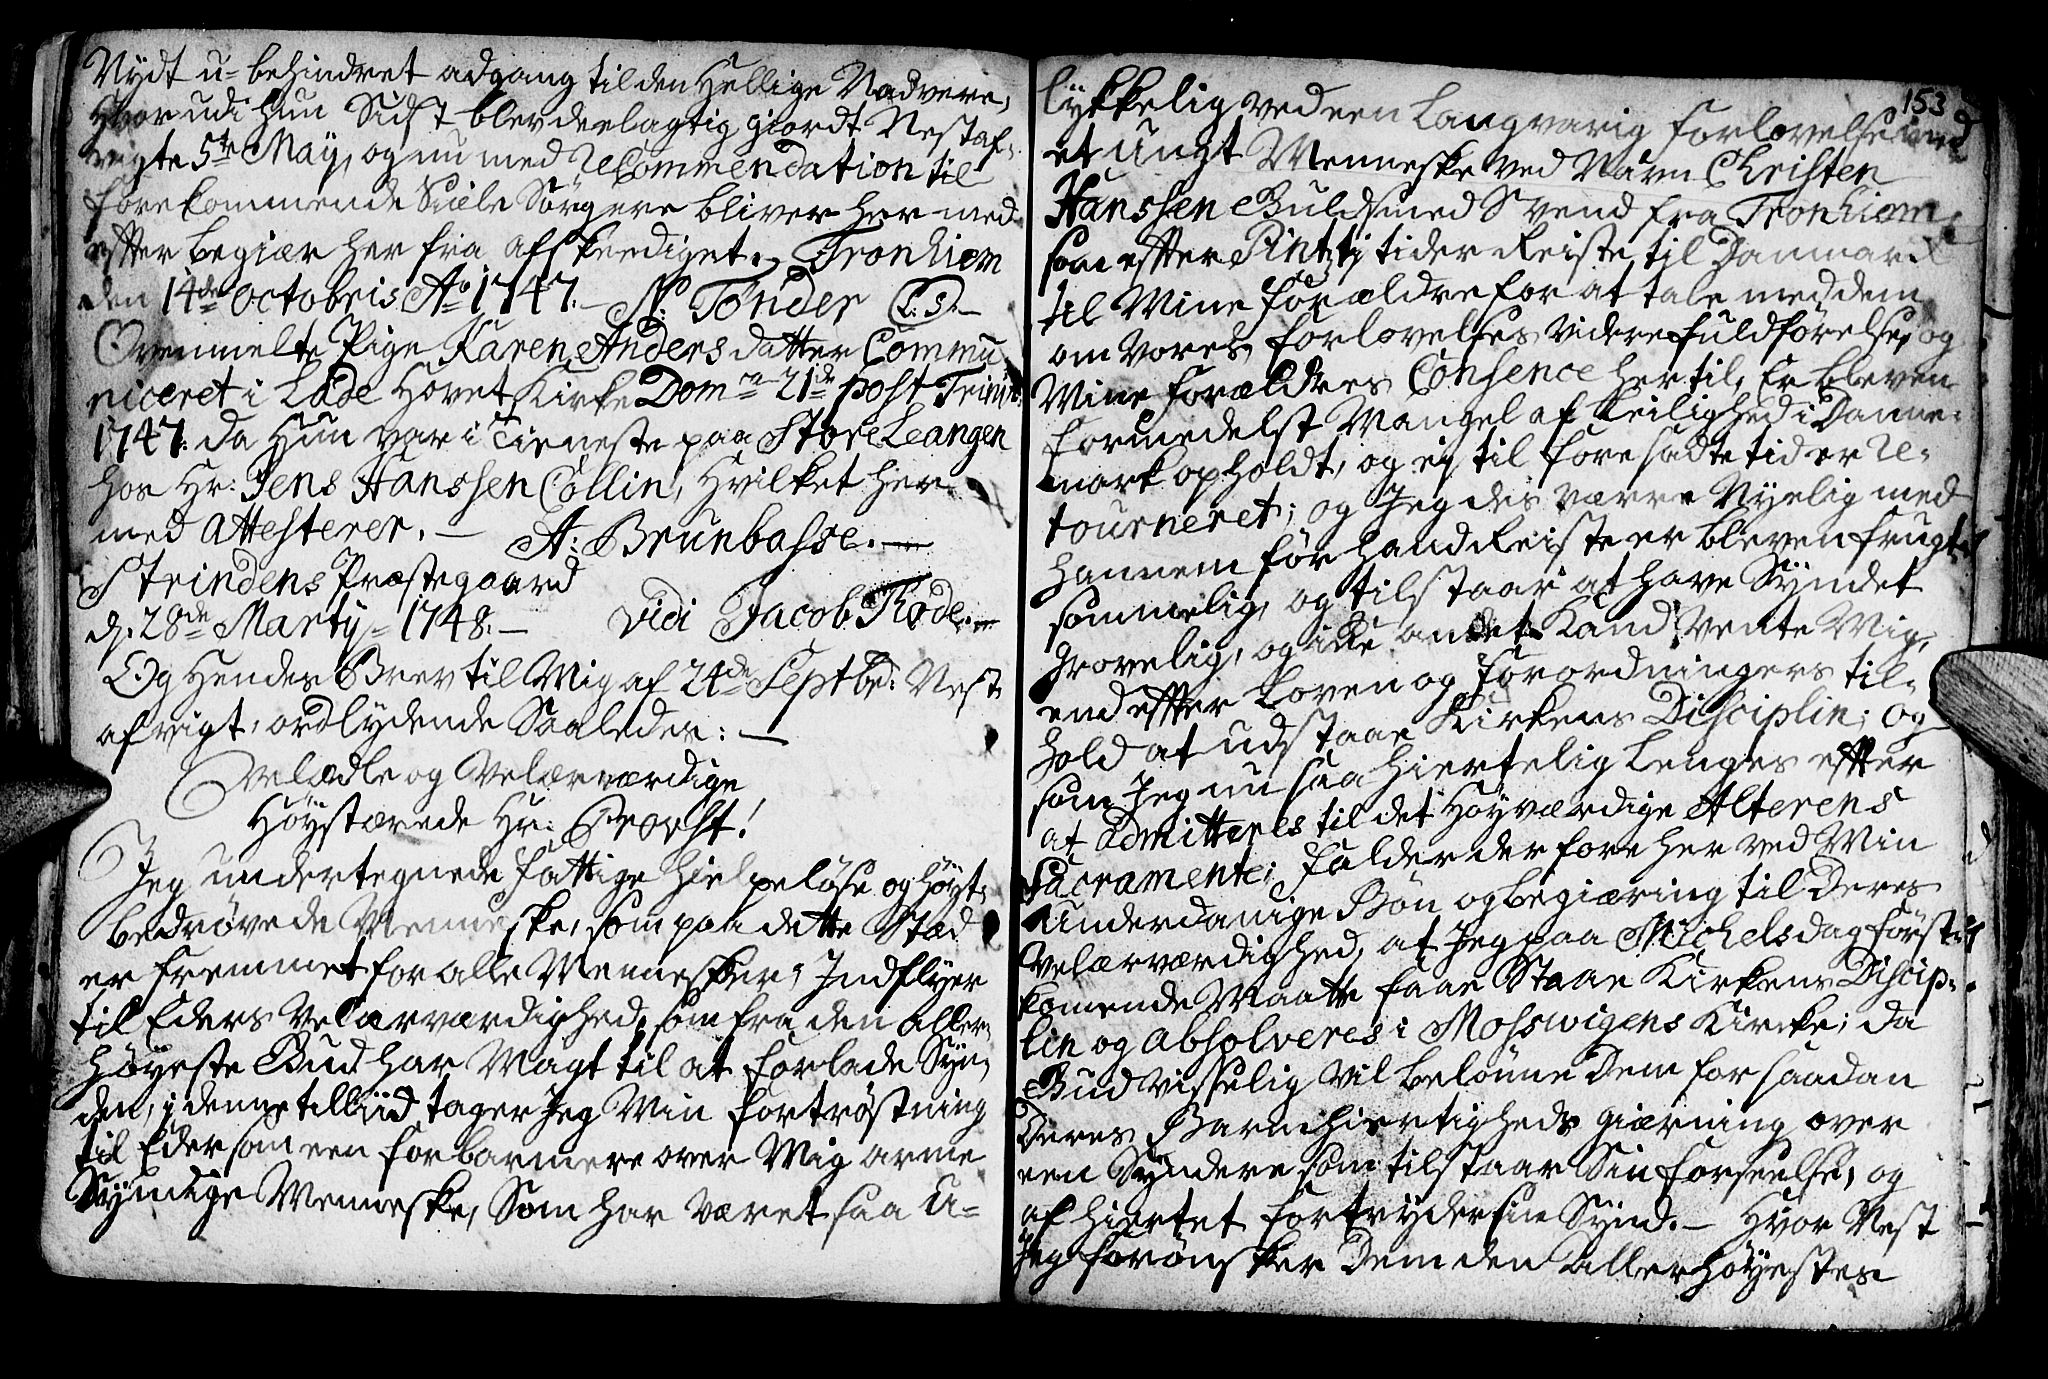 Nydt u-behindret adgang til den Hellige Nadvere,
Hvorudi hun Sidst blev deelagtig giordt Nestaf-
vigte 5te May, og nu med Recommendation til
forekommende Siæle Sørgere bliver her med
efter begiær her fra afskeediget. Tronhiem
den 14de octobris Ao 1747. N: Tønder L.S.
Ovenmelte Pige Karen Anders datter Commu
niceret i Lade Hovet Kirke Dom-ca 21de post Trinit:
1747. da Hun var i Tieneste paa Store Leangen
hos Hr: Jens Hanssen Collin, Hvilket her
med attesterer. — A: Brunbasse. —
Strindens Præstegaard
d. 28de Martij 1748. — Vidi Jacob Rode. —
Og Hendes Brev til Mig af 24de Septbr: Nest
afvigt, ordlydende Saaledes: —
Velædle og Velærværdige
Høystærede Hr: Provst!
Jeg undertegnede fattige hielpeløse og høyt-
bedrøvede Menneske, som paa dette Stæd
er fremmet for alle Mennesker, Indflyer
til Eders Velærværdighed, som fra den aller-
høyeste Gud har Magt til at forlade Syn-
den, i denne tilliid tager Jeg Min fortrøstning
til Eder som een forbarmere over Mig arme
Syndige Menneske, Som har været saa U-
153
lykkelig ved een Langvarig forlovelse med
et ungt Menneske ved Navn Christen
Hanssen Guldsmed Svend fra Tronhiem,
som efter Pintztj tider Reiste til Danmark
til Mine forældre for at tale med dem
om Vores forlovelses videre fuldførelse, og
Mine forældres Consence hertil, Er bleven
formedelst Mangel af Leilighed i Danne-
mark opholdt, og ej til foresadte tid er Re-
tourneret; og Jeg des værre Nyelig med
hannem før hand Reiste er bleven frugt-
sommelig, og tilstaar at have Syndet
grovelig, og ikke andet Kand Vente Mig,
end efter Loven og forordningers til-
hold at udstaae Kirkens Disciplin; og
som Jeg nu saa hiertelig Lenges efter
at admitteres til det Høyværdige Alterens
Sacramente; falder derfore her ved Min
Underdanige Bøn og begiæring til Deres
Velærværdighed, at Jeg paa Michelsdag først-
komende Maatte faae Staae Kirkens Discip-
lin og absolveres i Mosswigens Kircke; da
Gud visselig vil belønne Dem for saadan
Deres Barmhiertigheds giærning over
een Syndere som tilstaar Sin forseelse, og
af hiertet fortryder sin Synd. — Hvor Nest
Jeg forønsker Dem den allerhøyestes